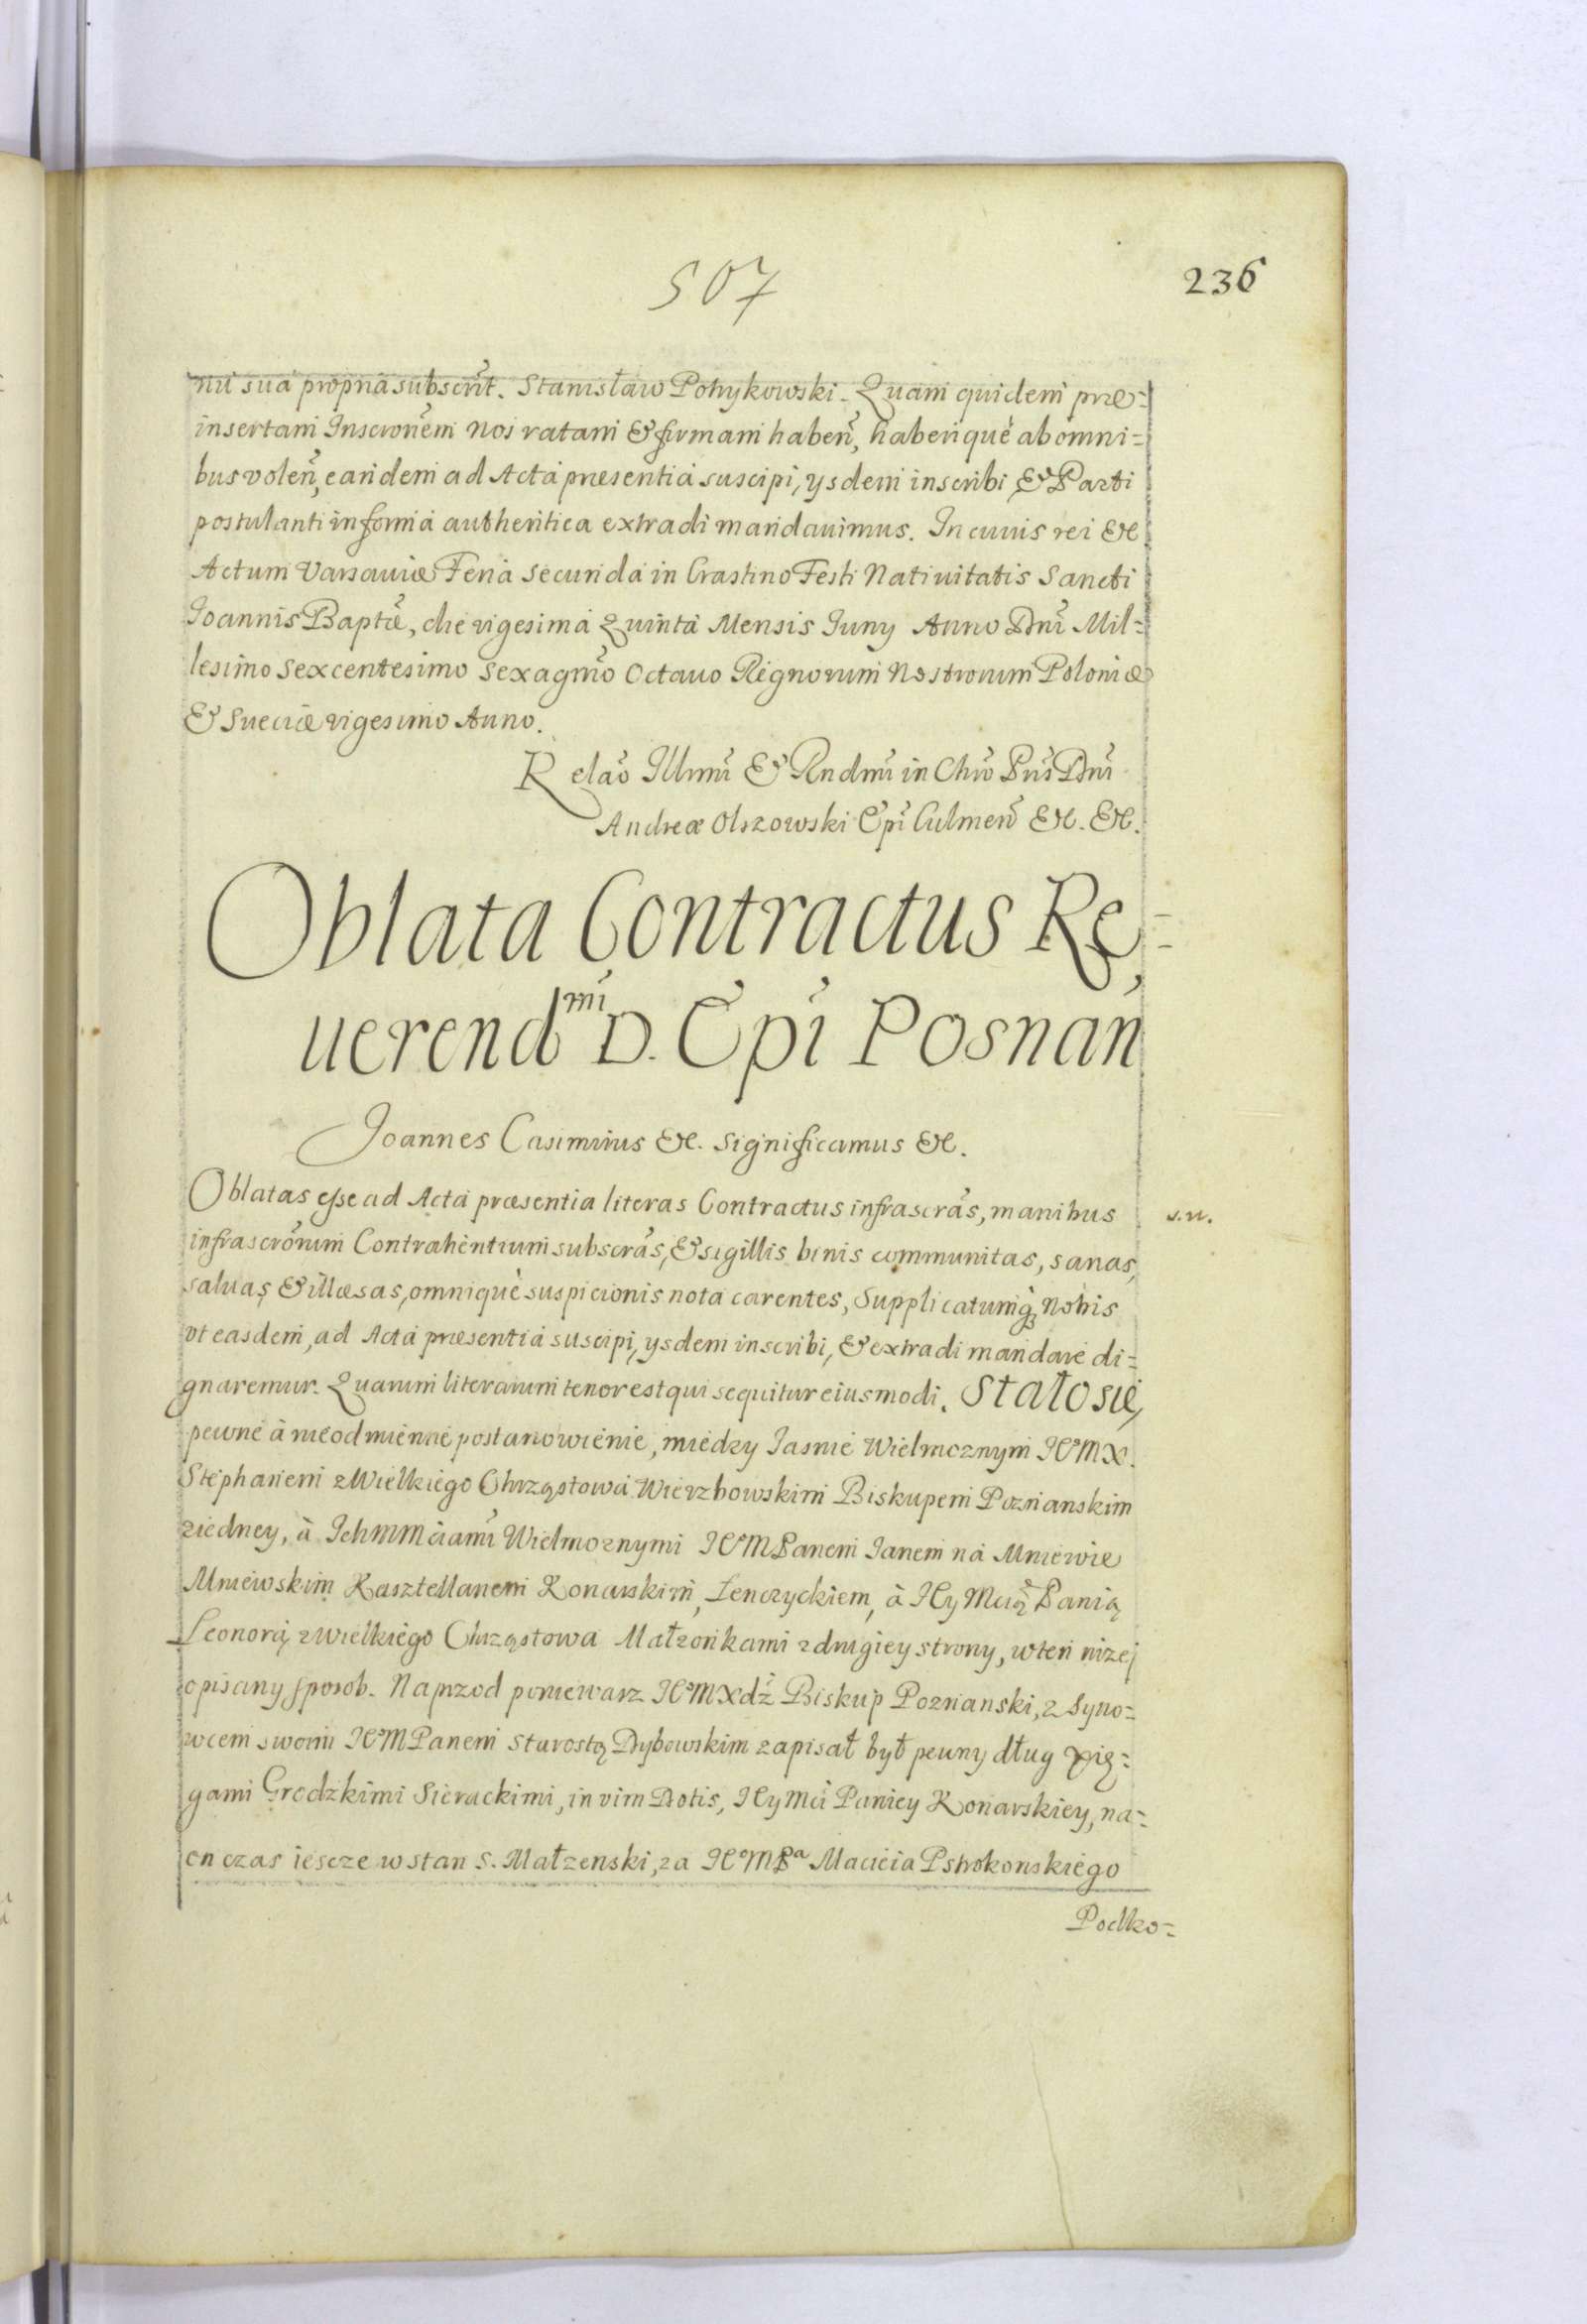 507
236
nu sua propria subscrit. Stanisław Potrykowski. Quam quidem præ=
insertam Inscronem Nos ratam & firmam haben, haberiquè ab omni=
bus volen, eandem ad Acta præsentia suscipi, ysdem inscribi & Parti
postulanti in forma authentica extradi mandauimus. In cuius rei &c
Actum Varsauiæ Feria Secunda in Crastino Festi Natiuitatis Sancti
Joannis Baptæ, die vigesima Quinta Mensis Juny Anno Dni Mil=
lesimo Sexcentesimo Sexagmo Octauo Regnorum Nostrorum Poloniæ
& Sueciæ vigesimo Anno.
Relao Illmi & Rndmi in Chro Pris Dni
Andreæ Olszowski Epi Culmen &c. &c.
Oblata Contractus Re=
uerendmi D. Epi Posnan
Joannes Casimirus &c. significamus &c.
Oblatas esse ad Acta præsentia literas Contractus infrascras, manibus
s.n.
infrascrorum Contrahentium subscras, & sigillis binis communitas, sanas,
saluas & illæsas, omniquè suspicionis nota carentes, Supplicatumq Nobis
vt easdem, ad Acta præsentia suscipi, ysdem inscribi, & extradi mandare di=
gnaremur. Quarum literarum tenor est qui sequitur eiusmodi. Stało się
pewne à nieodmienne postanowienie, miedzy Jasnie Wielmoznym JeoMX.
Stephanem z Wielkiego Chrząstowa Wierzbowskim Biskupem Poznanskim
ziedney, à Jchmmciami Wielmoznymi JeoMPanem Janem na Mniewie
Mniewskim Kasztellanem Konarskim, Lenczyckiem, à JeyMcią Panią
Leonorą z Wielkiego Chrząstowa Małzonkami zdrugiey strony, wten nizej
opisany sposob. Naprzod poniewarz JeoMXdz Biskup Poznanski, z Syno=
wcem swoim JeoMPanem Starostą Dybowskim zapisał był pewny dług Xię=
gami Grodzkimi Sierackimi, in vim Dotis, JeyMci Paniey Konarskiey, na=
on czas iescze wstan S. Małzenski, za JeoMPa Macieia Pstrokonskiego
Podko=